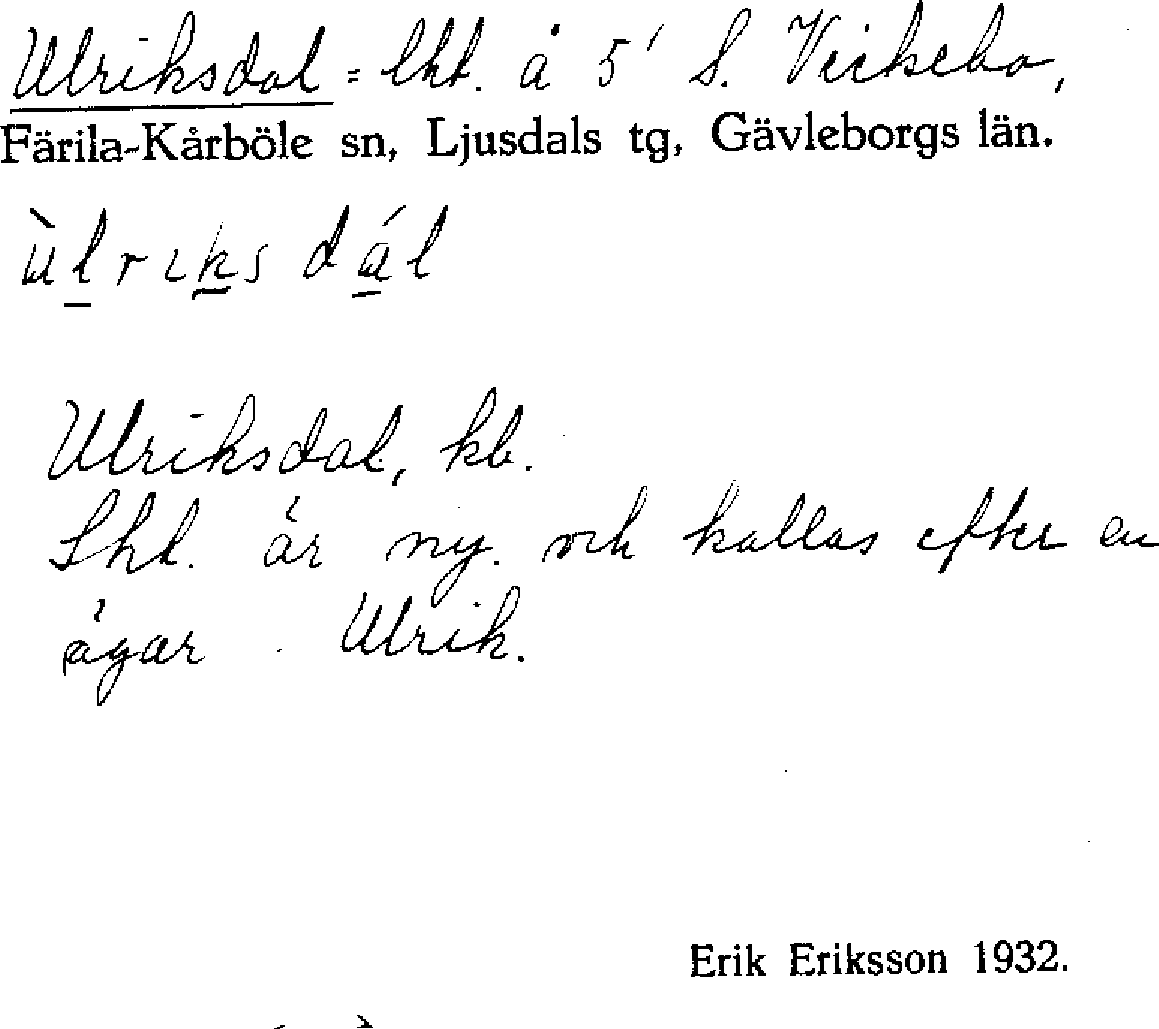 Ulriksdal = lht. å 5' S. Veckebo,
Färila-Kårböle sn, Ljusdals tg, Gävleborgs län.
ùlriks dál
Ulriksdal, kb.
Lht. är ny. och kallas efter en
ägar . Ulrik.
Erik Eriksson 1932.